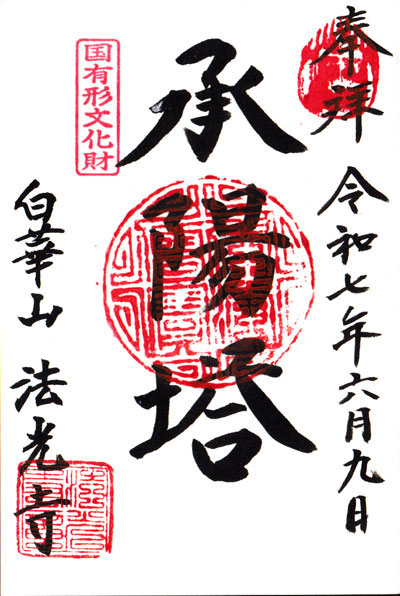 奉拝
令和七年六月九日
承陽塔
国有形文化財
白華山 法光寺